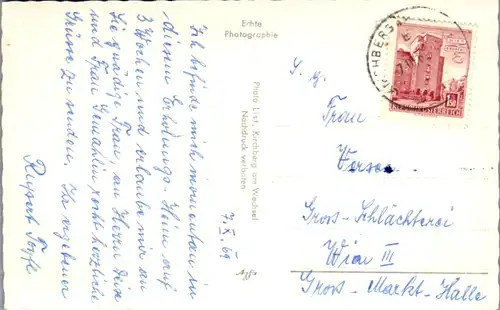 Ich befinde mich momentan in
diesem Erholungs-Heim auf
3 Wochen und erlaube mir an
Sie gnädige Frau, an Herrn
und Frau Gemahlin recht herzliche
Grüsse zu senden. Ihr ergebener
Rupert
7. X. 69
Echte
Photographie
Photo List, Kirchberg am Wechsel
Nachdruck verboten
KIRCHBERG AM
REPUBLIK ÖSTERREICH
1.50
S. g.
Frau
Gross-Schlächterei
Wien III
Gross-Markt-Halle